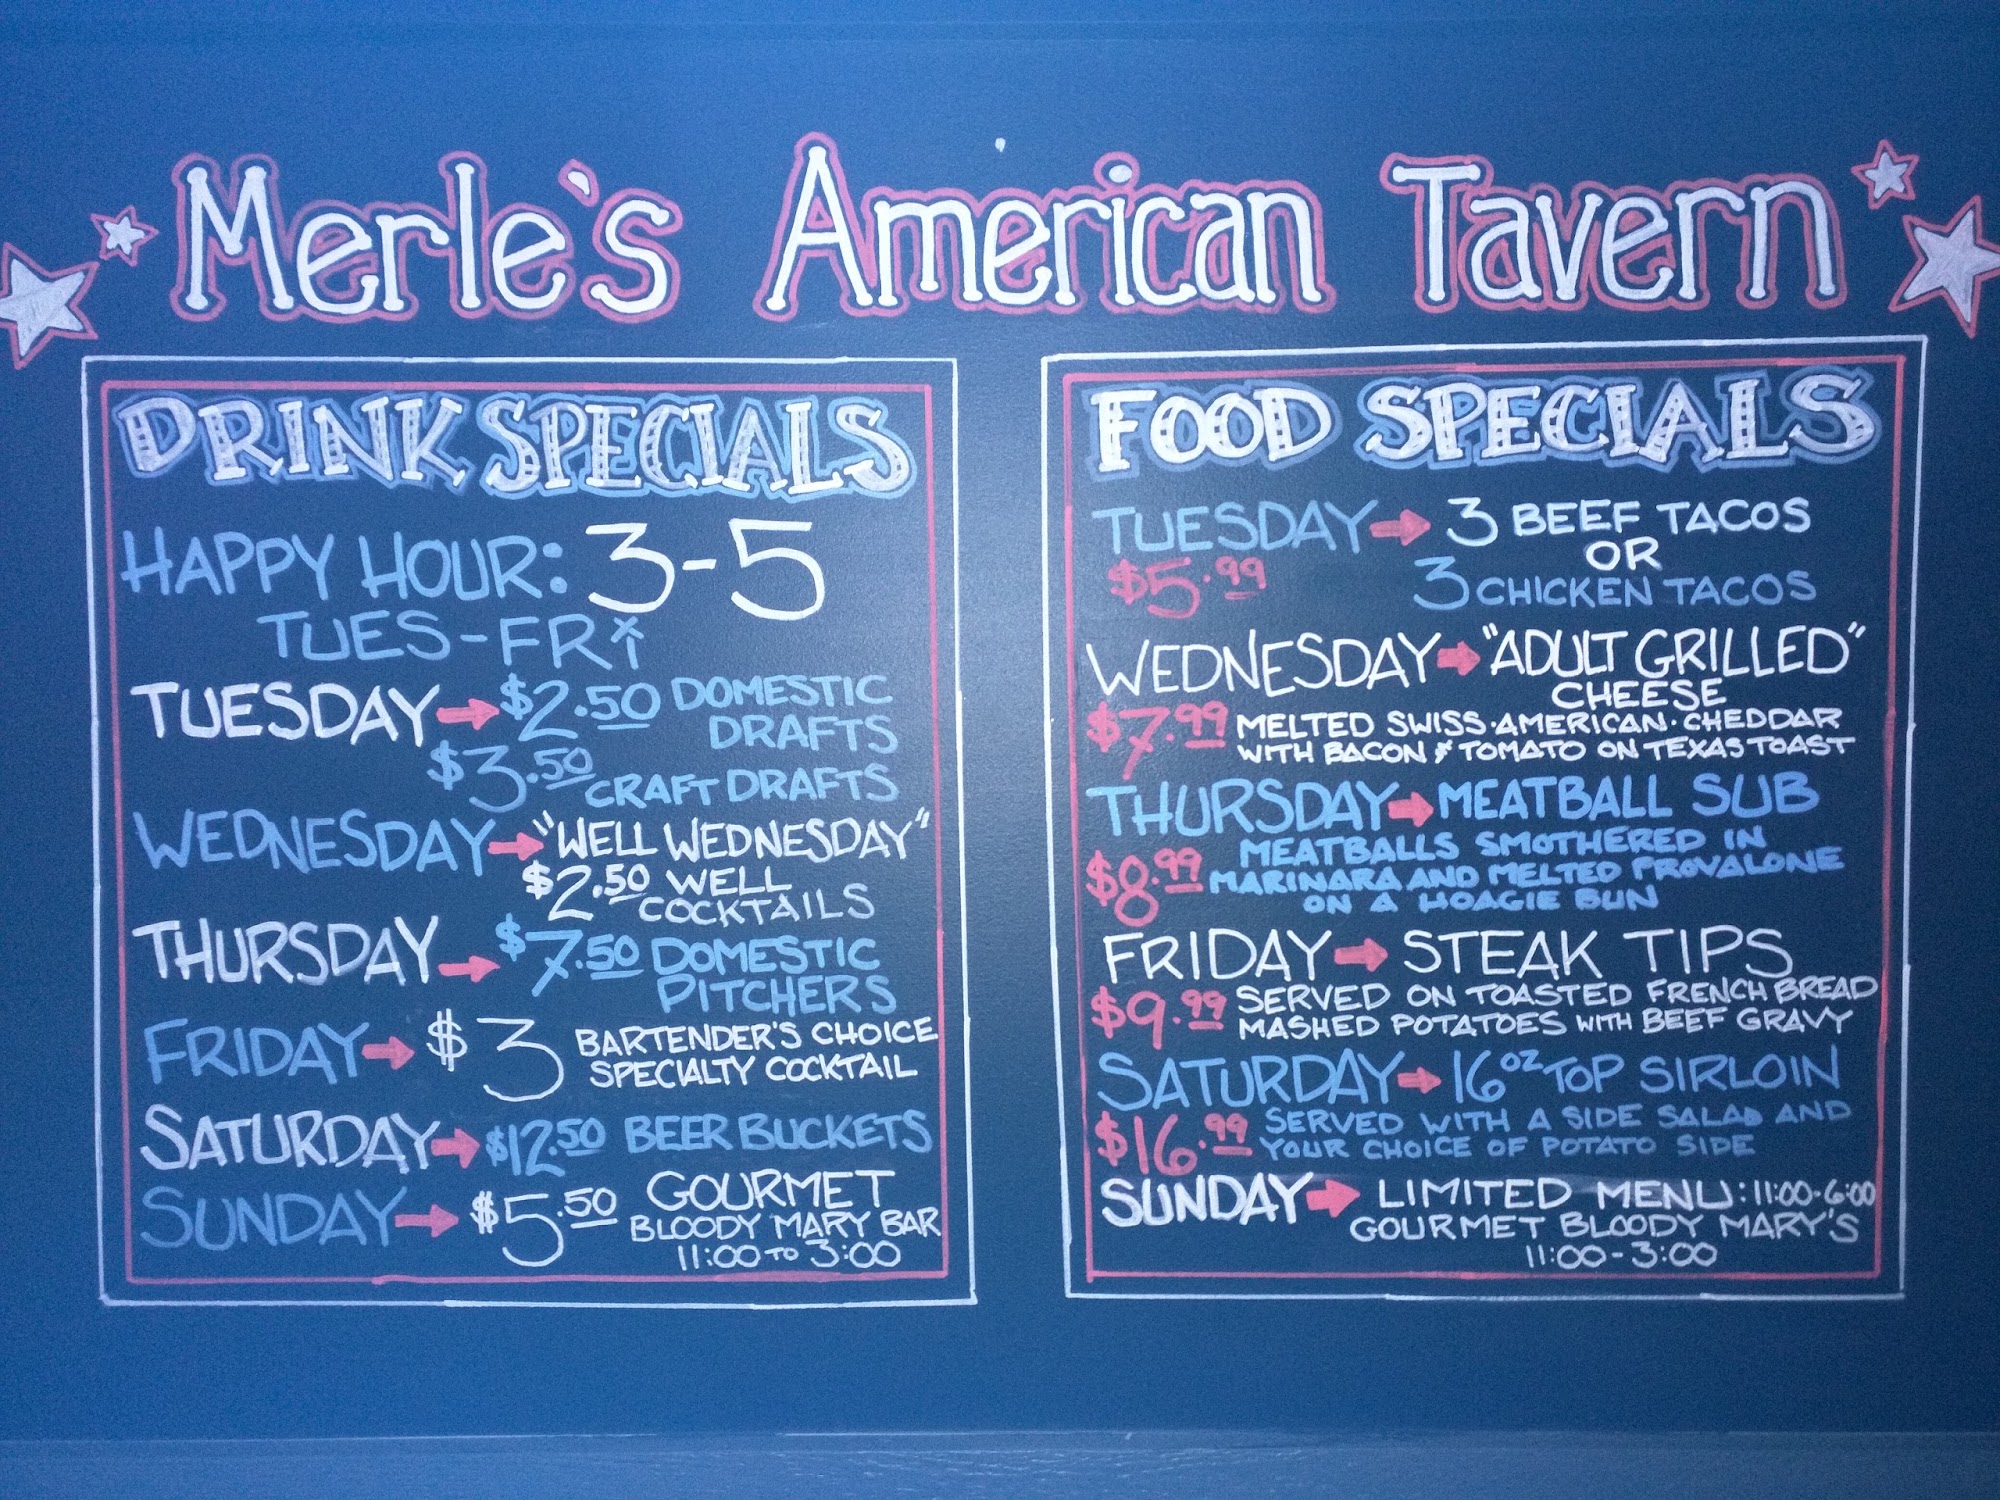 Merle's American Tavern
DRINK SPECIALS
HAPPY HOUR: 3-5
TUES-FRi
TUESDAY → $2.50 DOMESTIC
DRAFTS
$3.50 CRAFT DRAFTS
WEDNESDAY → "WELL WEDNESDAY"
$2.50 WELL
COCKTAILS
THURSDAY → $7.50 DOMESTIC
PITCHERS
FRIDAY → $3 BARTENDER'S CHOICE
SPECIALTY COCKTAIL
SATURDAY → $12.50 BEER BUCKETS
SUNDAY → $5.50 GOURMET
BLOODY MARY BAR
11:00 TO 3:00
FOOD SPECIALS
TUESDAY → 3 BEEF TACOS
OR
$5.99 3 CHICKEN TACOS
WEDNESDAY → "ADULT GRILLED"
CHEESE
$7.99 MELTED SWISS·AMERICAN·CHEDDAR
WITH BACON & TOMATO ON TEXAS TOAST
THURSDAY → MEATBALL SUB
$8.99 MEATBALLS SMOTHERED IN
MARINARA AND MELTED PROVALONE
ON A HOAGIE BUN
FRIDAY → STEAK TIPS
$9.99 SERVED ON TOASTED FRENCH BREAD
MASHED POTATOES WITH BEEF GRAVY
SATURDAY → 16 OZ TOP SIRLOIN
$16.99 SERVED WITH A SIDE SALAD AND
YOUR CHOICE OF POTATO SIDE
SUNDAY → LIMITED MENU: 11:00-6:00
GOURMET BLOODY MARY'S
11:00-3:00